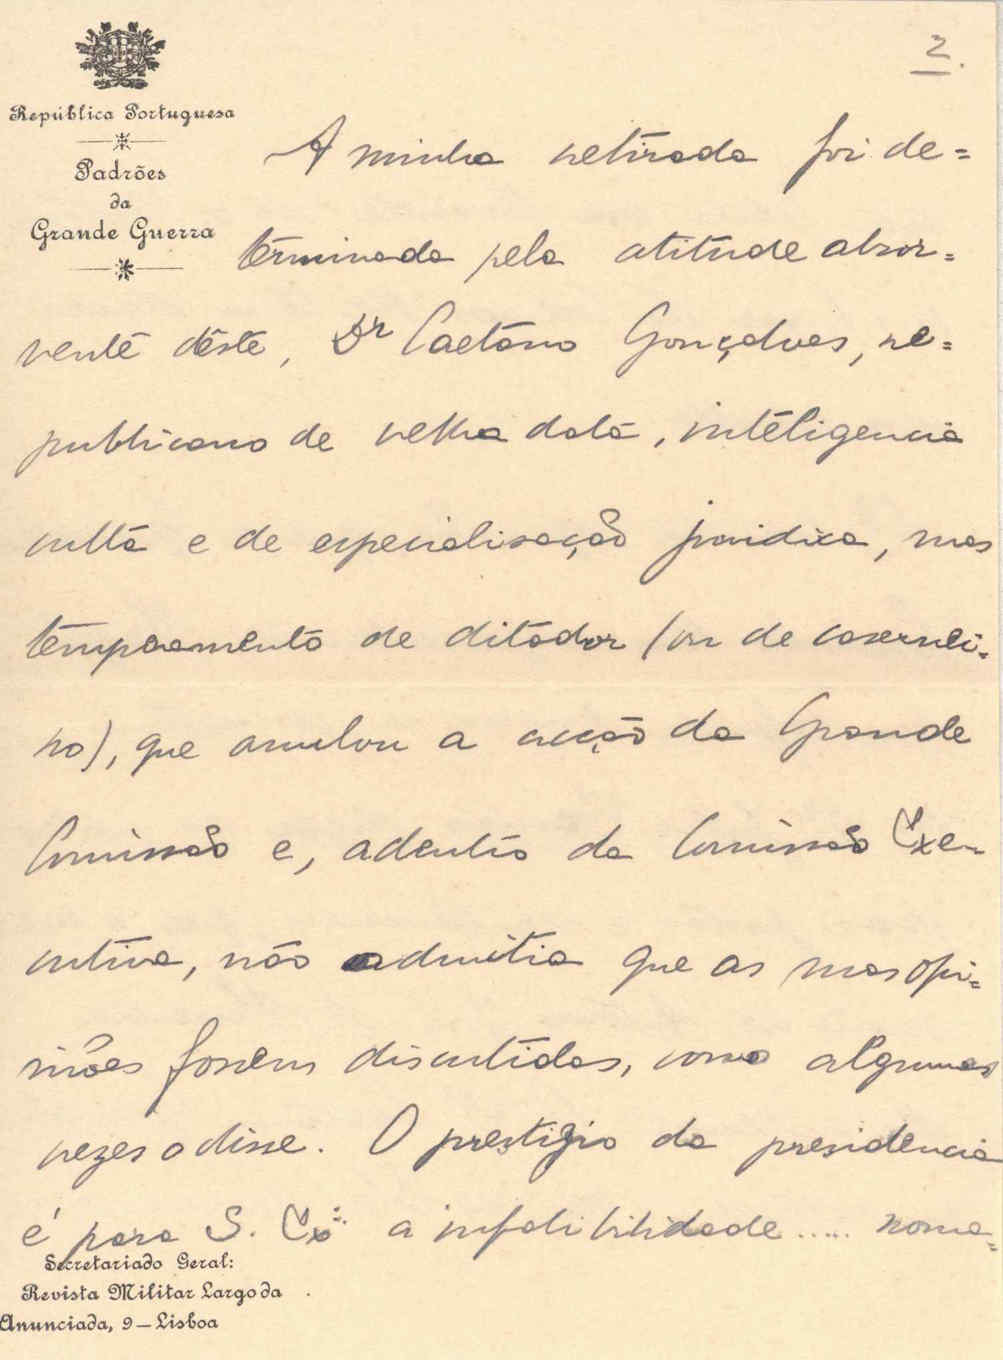 2.
República Portuguesa
Padrões
da
Grande Guerra
A minha retirada foi de=
terminada pela atitude absor-=
vente dêste, Dr Caetano Gonçalves, re=
publicano de velha data, inteligencia
culta e de especialisação juridica, mas
temperamento de ditador (ou de caserei-
ro), que anulou a acção da Grande
Comissão e, adentro da Comissão Exe-
cutiva, não admitia que as suas opi=
niões fossem discutidas, como algumas
vezes o disse. O prestigio da presidencia
é para S. Exª. a infalibilidade ..... roma=
Secretariado Geral:
Revista Militar Largo da
Anunciada, 9 — Lisboa